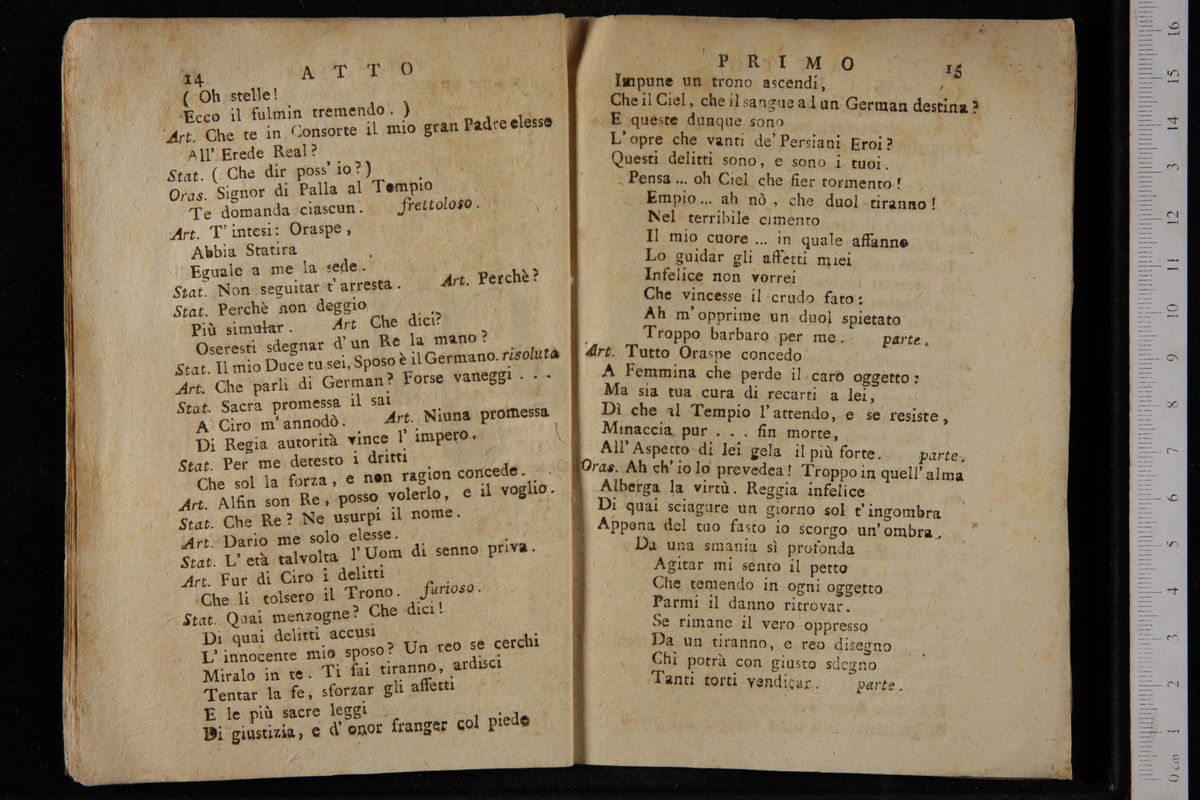 14 ATTO
( Oh stelle!
Ecco il fulmin tremendo. )
Art. Che te in Consorte il mio gran Padre elesse
All' Erede Real?
Stat. ( Che dir poss' io?)
Oras. Signor di Palla al Tempio
Te domanda ciascun. frettoloso.
Art. T' intesi: Oraspe,
Abbia Statira
Eguale a me la sede.
Stat. Non seguitar t' arresta. Art. Perchè?
Stat. Perchè non deggio
Più simular. Art Che dici?
Oseresti sdegnar d' un Re la mano?
Stat. Il mio Duce tu sei, Sposo è il Germano. risoluta
Art. Che parli di German? Forse vaneggi . . .
Stat. Sacra promessa il sai
A Ciro m' annodò. Art. Niuna promessa
Di Regia autorità vince l' impero.
Stat. Per me detesto i dritti
Che sol la forza, e non ragion concede.
Art. Alfin son Re, posso volerlo, e il voglio.
Stat. Che Re? Ne usurpi il nome.
Art. Dario me solo elesse.
Stat. L' età talvolta l' Uom di senno priva.
Art. Fur di Ciro i delitti
Che li tolsero il Trono. furioso.
Stat. Quai menzogne? Che dici!
Di quai delitti accusi
L' innocente mio sposo? Un reo se cerchi
Miralo in te. Ti fai tiranno, ardisci
Tentar la fe, sforzar gli affetti
E le più sacre leggi
Di giustizia, e d' onor franger col piede
PRIMO 15
Impune un trono ascendi,
Che il Ciel, che il sangue ad un German destina?
E queste dunque sono
L' opre che vanti de' Persiani Eroi?
Questi delitti sono, e sono i tuoi.
Pensa ... oh Ciel che fier tormento!
Empio ... ah nò, che duol tiranno!
Nel terribile cimento
Il mio cuore ... in quale affanno
Lo guidar gli affetti miei
Infelice non vorrei
Che vincesse il crudo fato:
Ah m' opprime un duol spietato
Troppo barbaro per me. parte.
Art. Tutto Oraspe concedo
A Femmina che perde il caro oggetto:
Ma sia tua cura di recarti a lei,
Dì che al Tempio l' attendo, e se resiste,
Minaccia pur . . . fin morte,
All' Aspetto di lei gela il più forte. parte.
Oras. Ah ch' io lo prevedea! Troppo in quell' alma
Alberga la virtù. Reggia infelice
Di quai sciagure un giorno sol t' ingombra
Appena del tuo fasto io scorgo un' ombra.
Da una smania sì profonda
Agitar mi sento il petto
Che temendo in ogni oggetto
Parmi il danno ritrovar.
Se rimane il vero oppresso
Da un tiranno, e reo disegno
Chi potrà con giusto sdegno
Tanti torti vendicar. parte.
0 cm 1 2 3 4 5 6 7 8 9 10 11 12 13 14 15 16